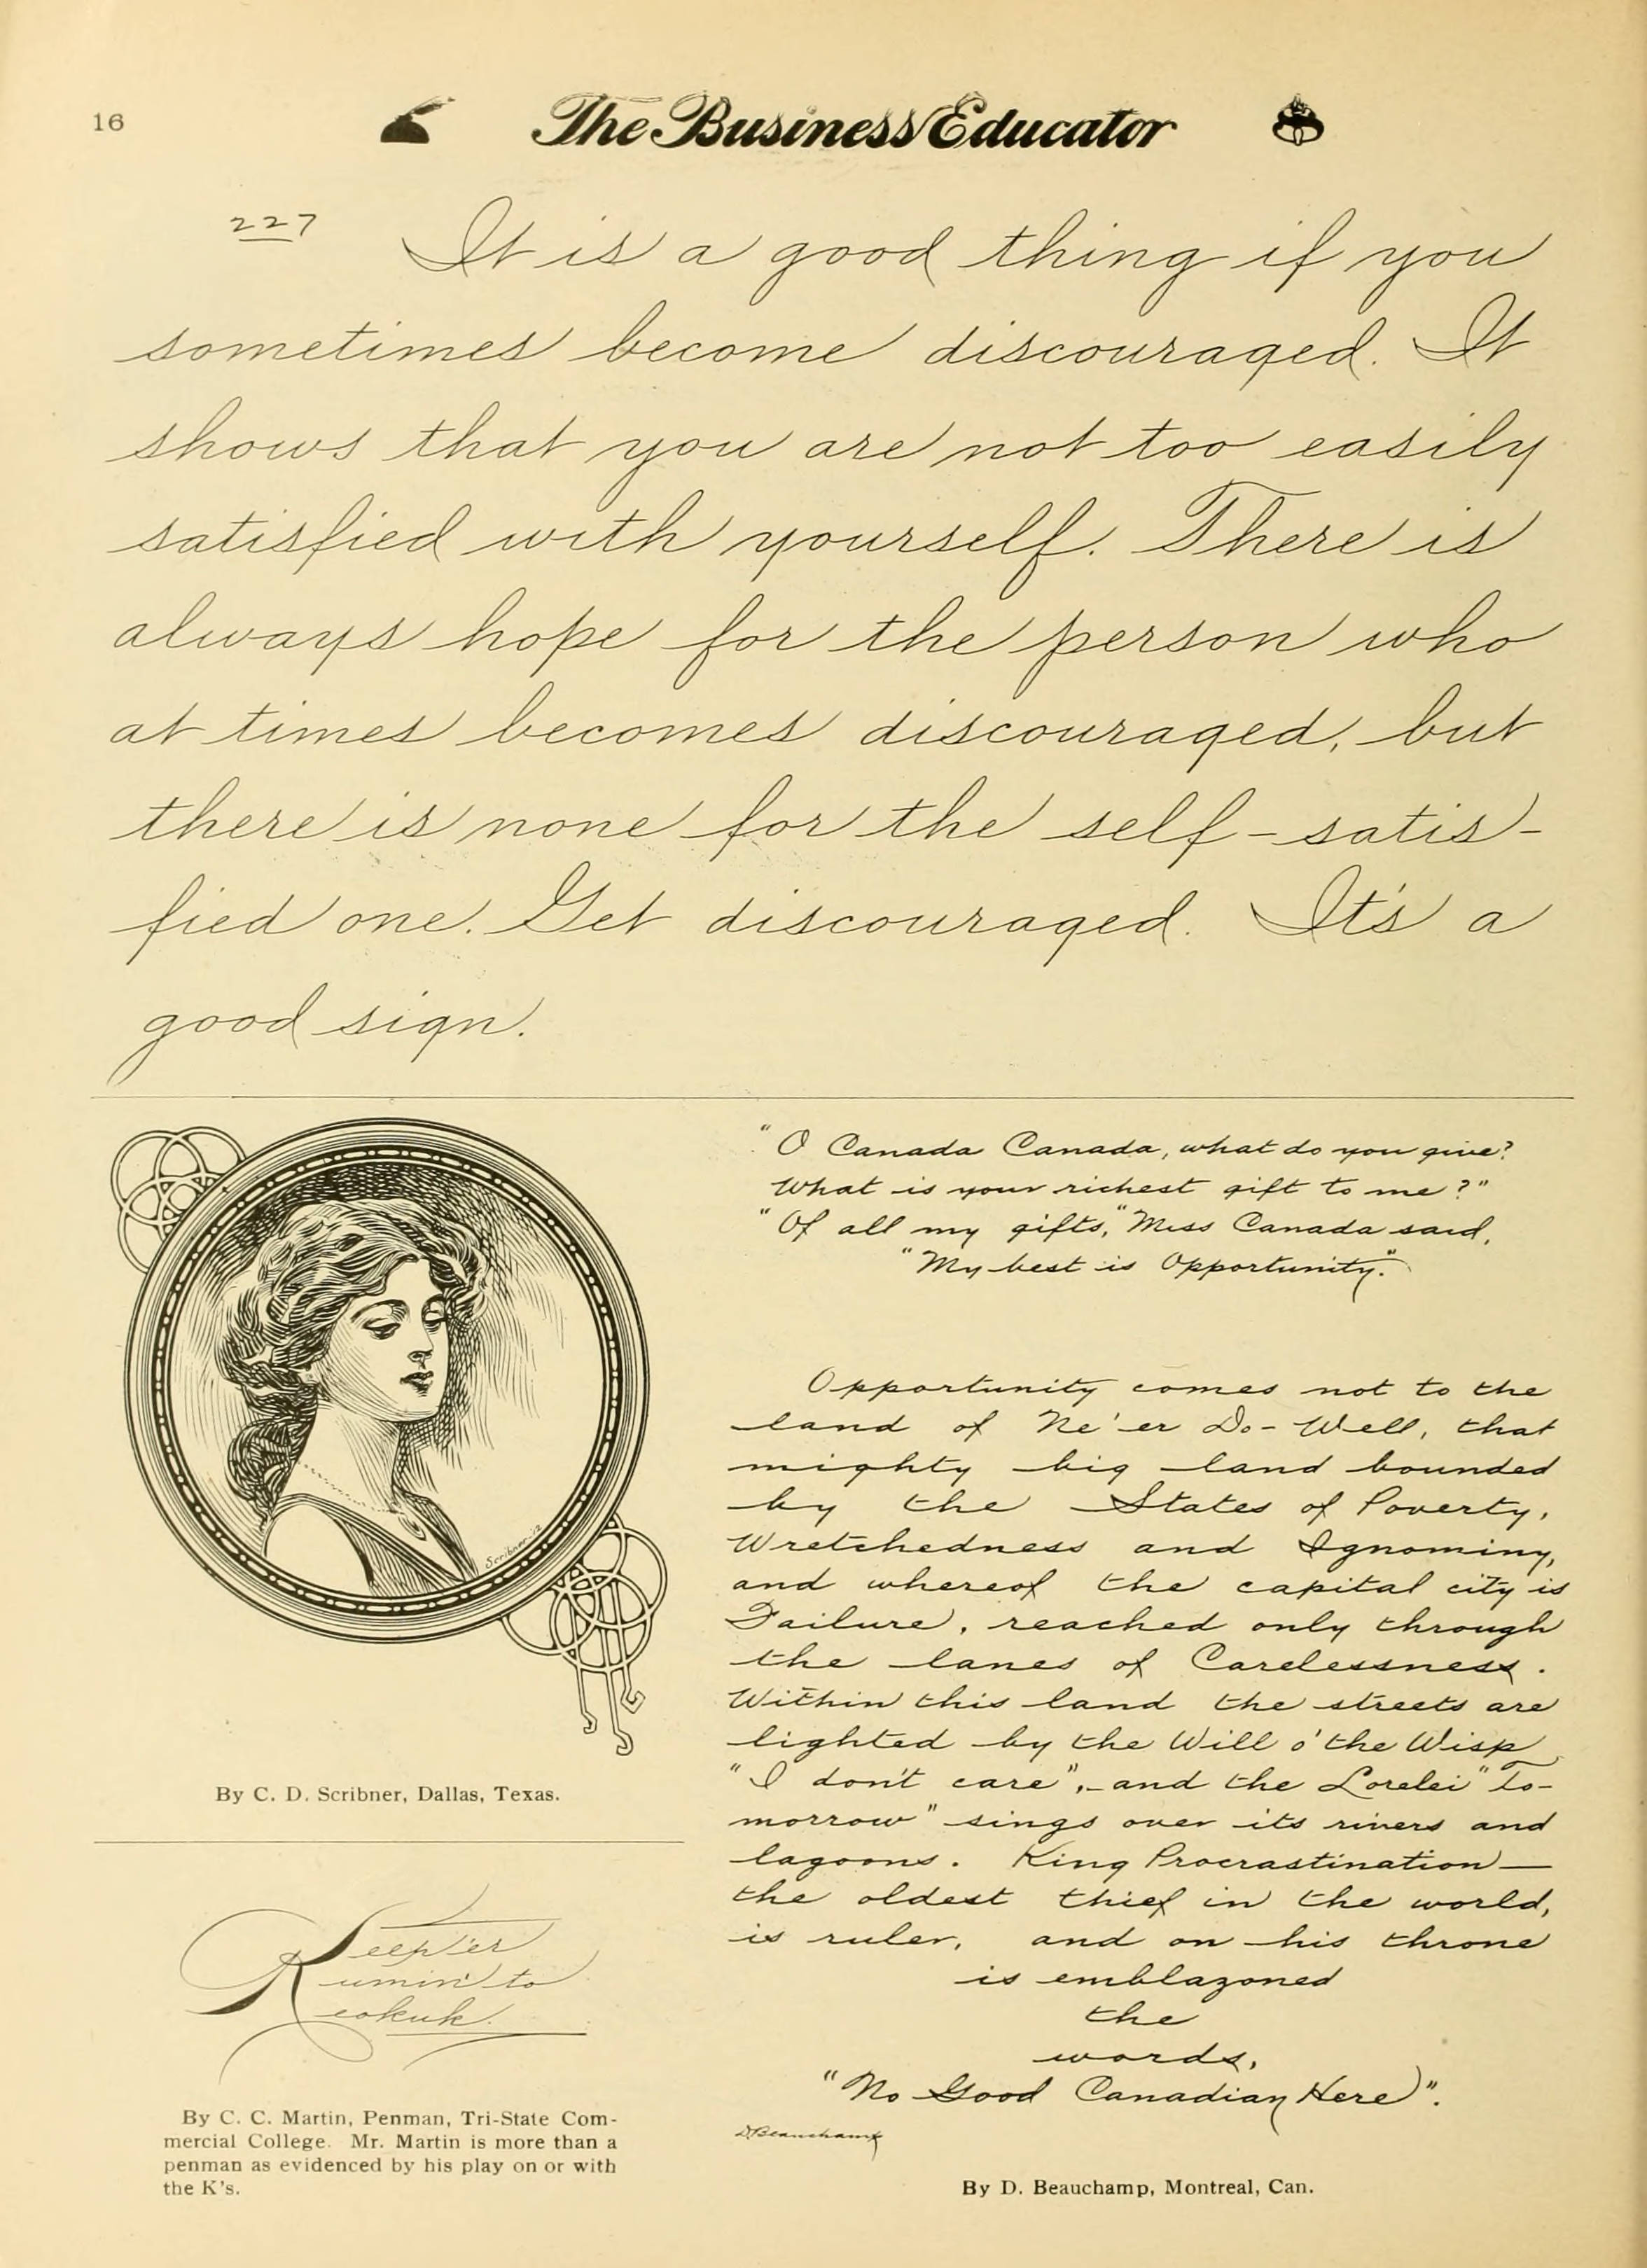 16
The Business Educator
227
It is a good thing if you
sometimes become discouraged. It
shows that you are not too easily
satisfied with yourself. There is
always hope for the person who
at times becomes discouraged, but
there is none for the self-satis-
fied one. Get discouraged. It's a
good sign.
Scribner-12
By C. D. Scribner, Dallas, Texas.
Keep'er
Kumin' to
Keokuk.
By C. C. Martin, Penman, Tri-State Com-
mercial College. Mr. Martin is more than a
penman as evidenced by his play on or with
the K's.
"O Canada Canada, what do you give?
What is your richest gift to me?"
"Of all my gifts," Miss Canada said,
"My best is Opportunity."
Opportunity comes not to the
land of Ne'er Do-Well, that
mighty big land bounded
by the States of Poverty,
Wretchedness and Ignominy,
and whereof the capital city is
Failure, reached only through
the lanes of Carelessness.
Within this land the streets are
lighted by the Will o' the Wisp
"I don't care", and the Lorelei "To-
morrow" sings over its rivers and
lagoons. King Procrastination—
the oldest thief in the world,
is ruler, and on his throne
is emblazoned
the
words,
"No Good Canadian Here".
D. Beauchamp
By D. Beauchamp, Montreal, Can.